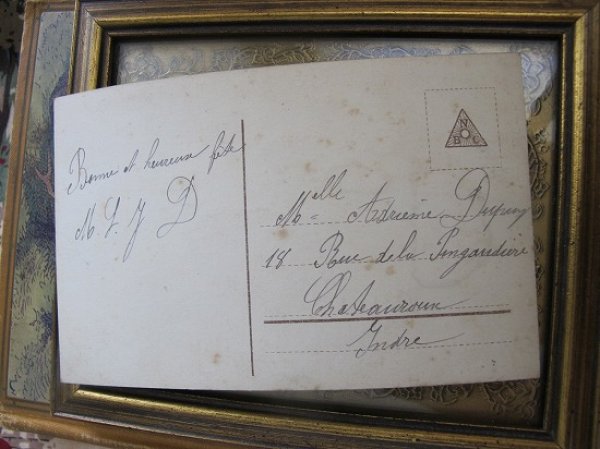 Bonne et heureuse fête
M. L. J D
N
B G
Melle Adrienne Dupuy
18 Rue de la Pingaudière
Chateauroux
Indre